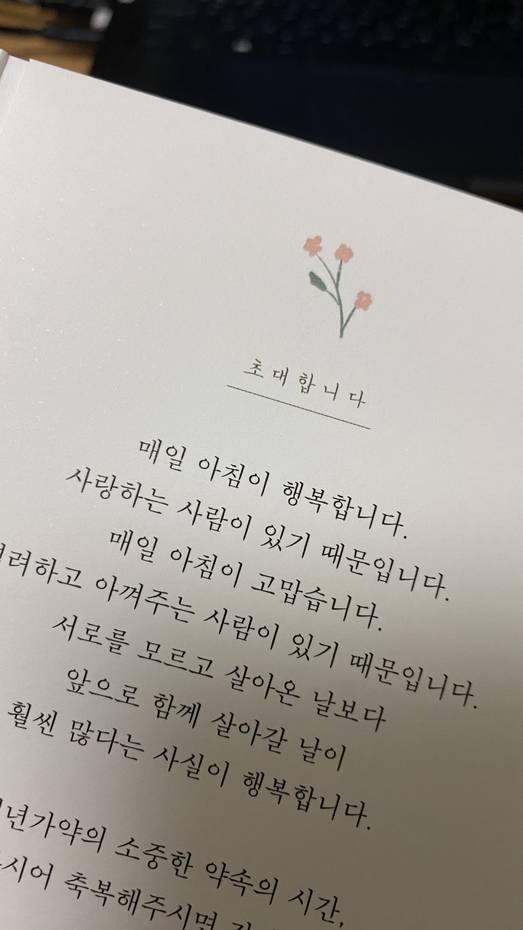 초대합니다
매일 아침이 행복합니다.
사랑하는 사람이 있기 때문입니다.
매일 아침이 고맙습니다.
아껴주는 사람이 있기 때문입니다.
서로를 모르고 살아온 날보다
앞으로 함께 살아갈 날이
훨씬 많다는 사실이 행복합니다.
소중한 약속의 시간,
축복해주시면